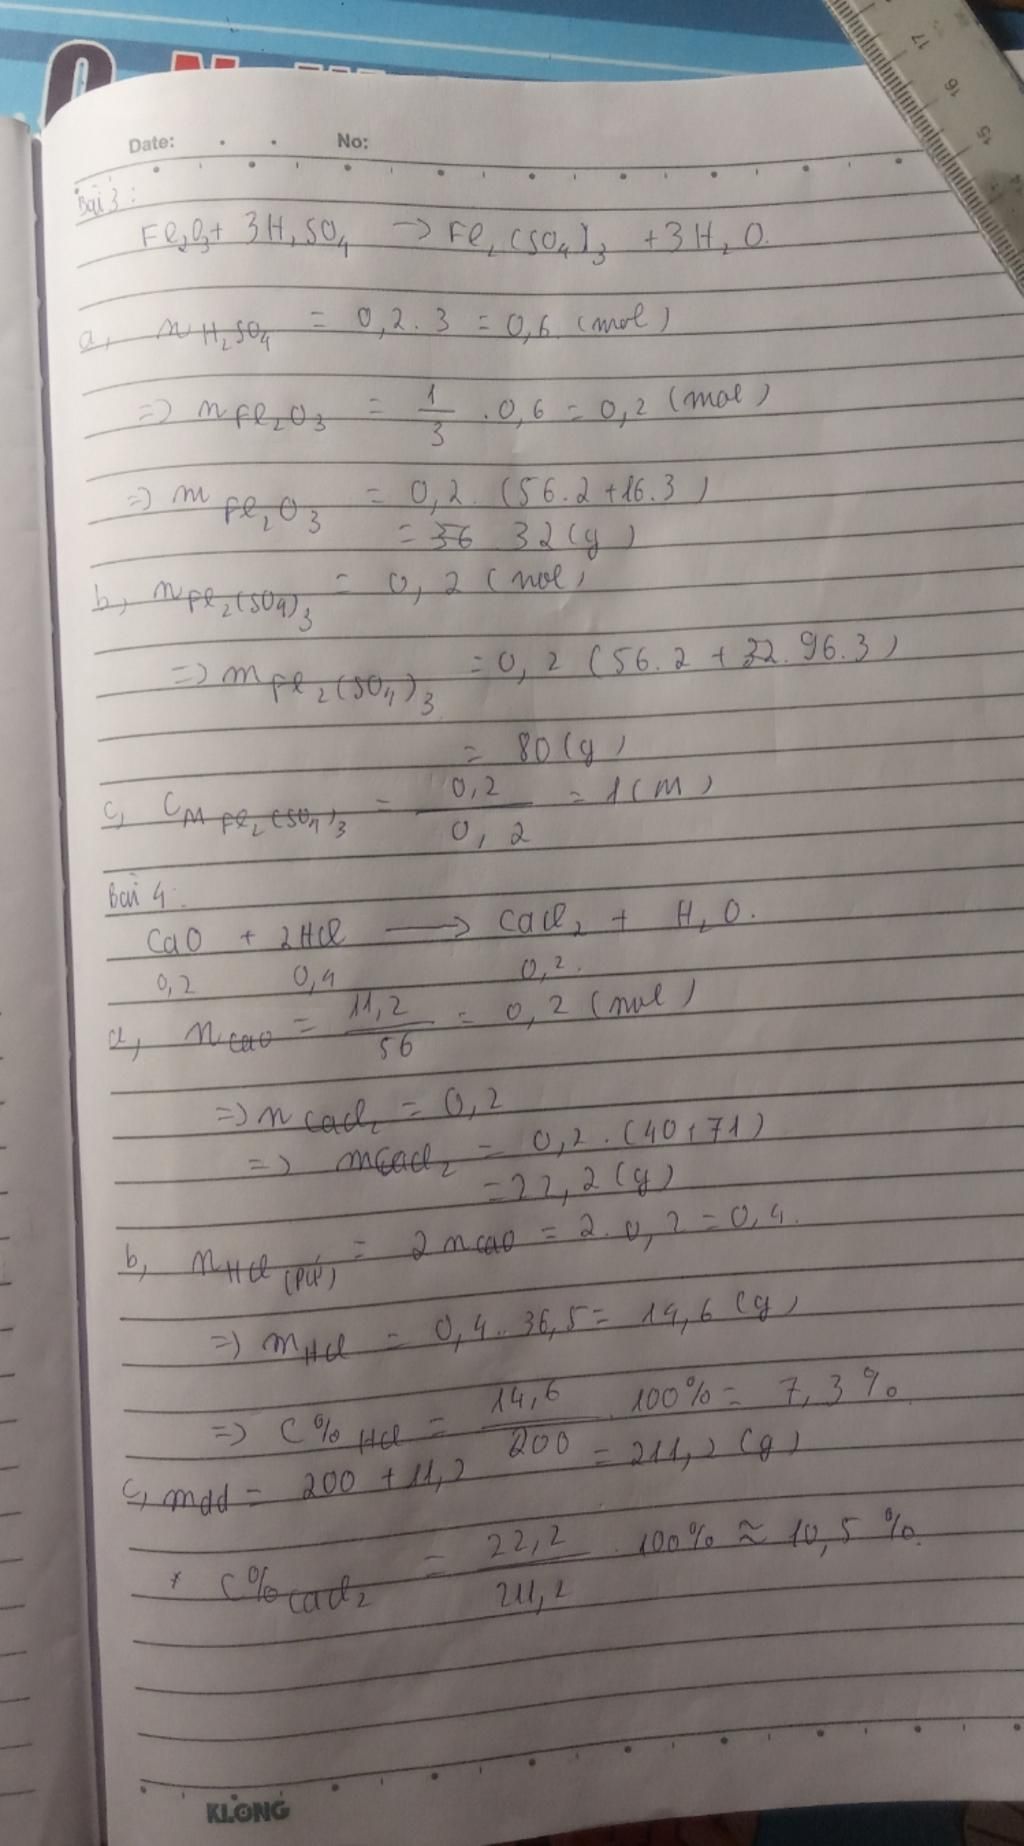 Date: No:
Bài 3:
Fe₂O₃ + 3H₂SO₄ → Fe₂(SO₄)₃ + 3H₂O.
a, n H₂SO₄ = 0,2.3 = 0,6 (mol)
=> n Fe₂O₃ = 1/3 .0,6 = 0,2 (mol)
=> m Fe₂O₃ = 0,2.(56.2+16.3)
= 32(g)
b, n Fe₂(SO₄)₃ = 0,2 (mol)
=> m Fe₂(SO₄)₃ = 0,2(56.2+32.96.3)
= 80(g)
c, CM Fe₂(SO₄)₃ = 0,2/0,2 = 1(M)
Bài 4.
CaO + 2HCl → CaCl₂ + H₂O.
0,2 0,4 0,2.
a, n CaO = 11,2/56 = 0,2 (mol)
=> n CaCl₂ = 0,2
=> m CaCl₂ = 0,2.(40+71)
= 22,2(g)
b, n HCl (pứ) = 2nCaO = 2.0,2 = 0,4.
=> m HCl = 0,4.36,5 = 14,6 (g)
=> C% HCl = 14,6/200 .100% = 7,3%
c, mdd = 200 + 11,2 = 211,2 (g)
* C% CaCl₂ = 22,2/211,2 .100% ≈ 10,5%.
KLONG
17
16
15